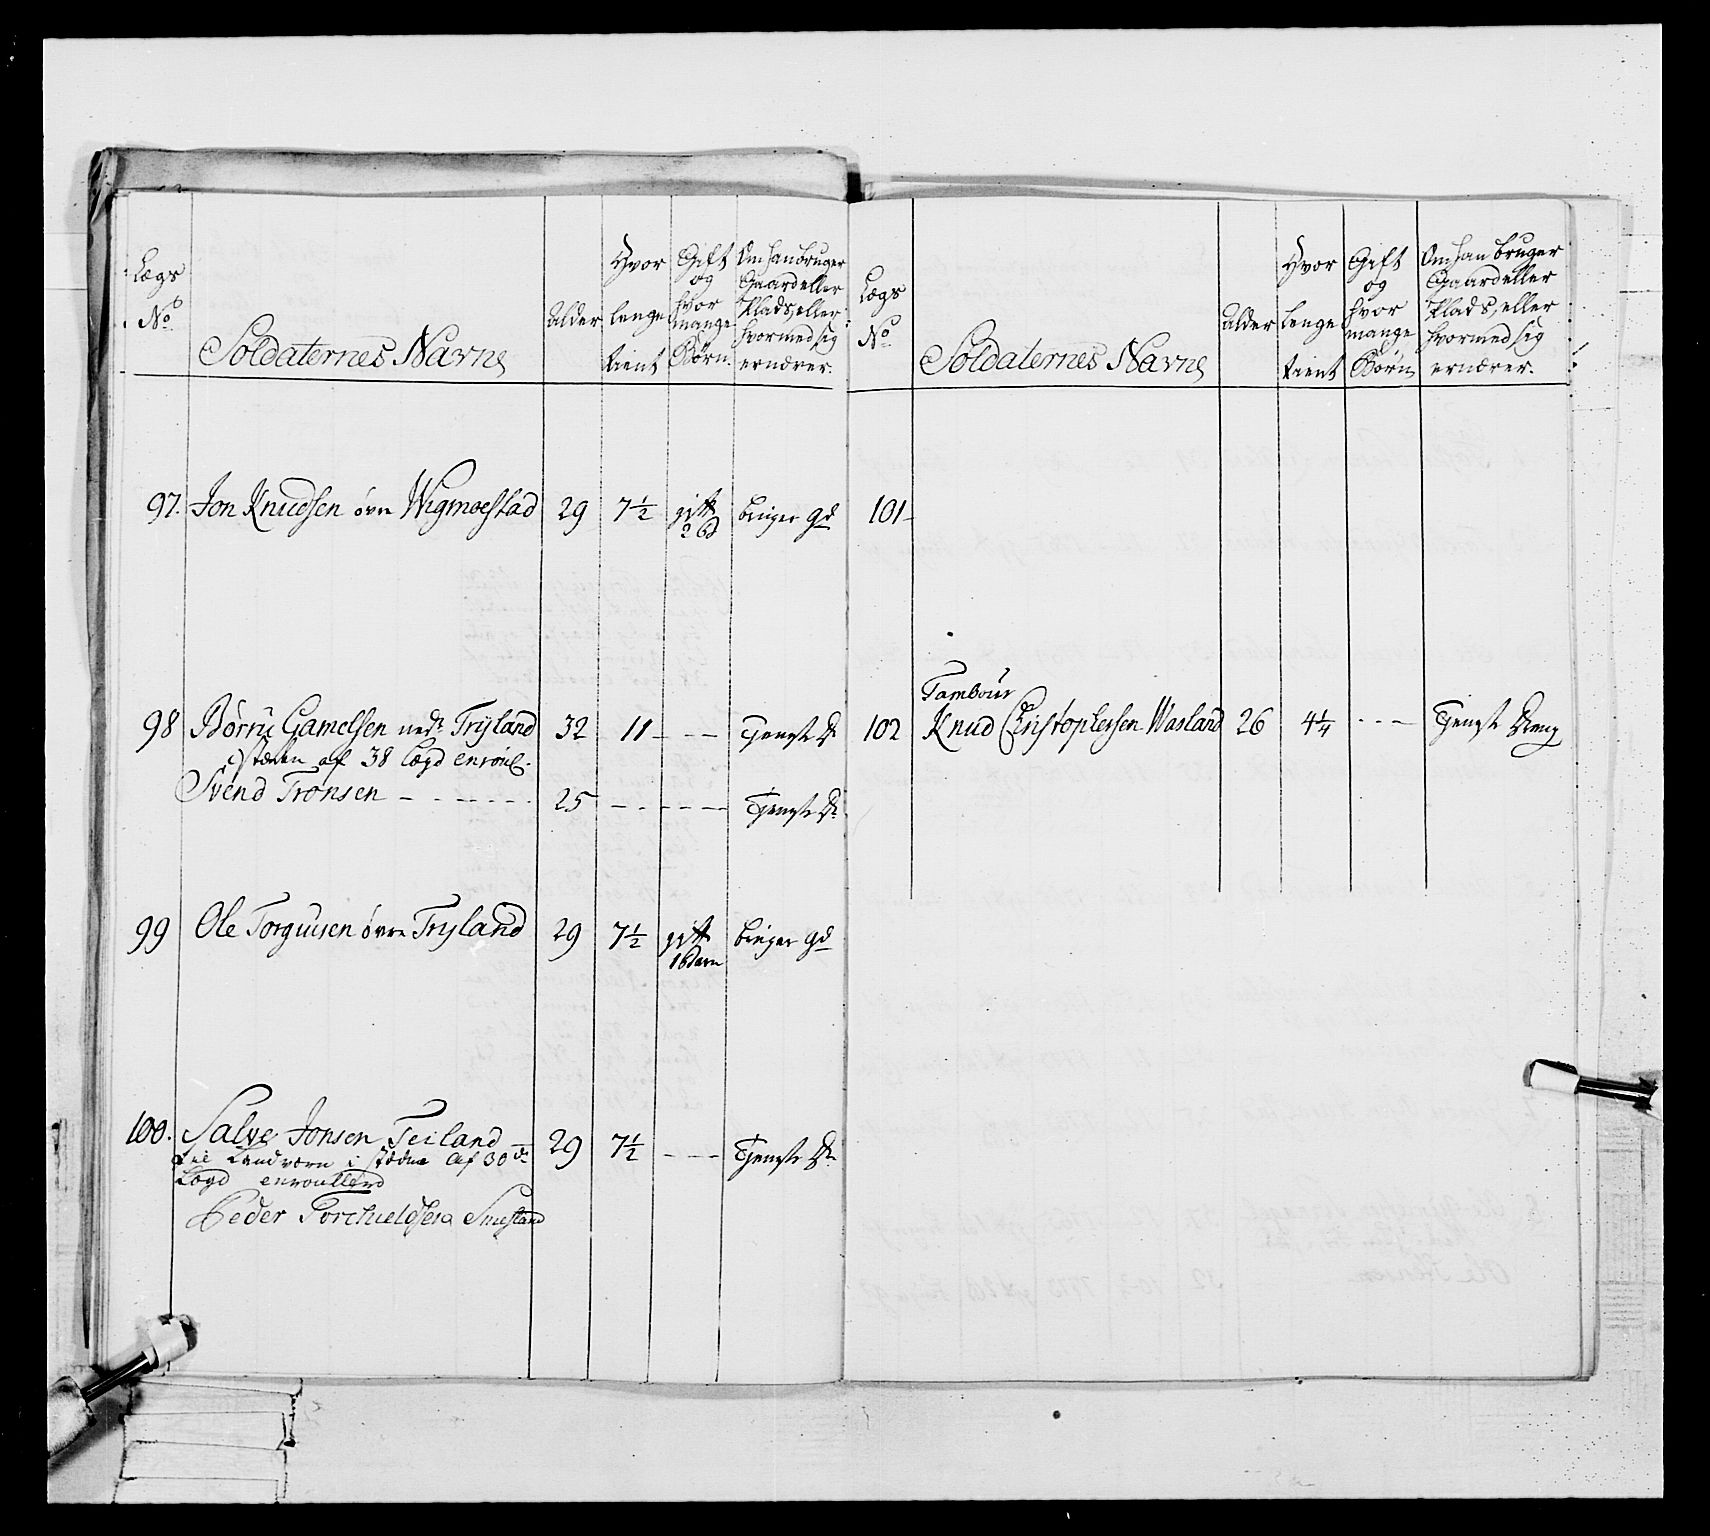 Lægs
No
Soldaternes Navne
Alder
Hvor
lenge
tient
Gift
og
hvor
mange
Børn.
Om han bruger
Gaard eller
Plads, eller
hvormed sig
ernærer.
97. Jon Knudsen øvre Wigmoestad 29 7½ gift 2 b bruger gd
98 Børru Gamelsen nedr Tryland 32 11 - - - Tjenste Dr
i stæden af 38 Lægd enroul.
Svend Tronsen - - - - - 25 - - - - - Tjenste Dr
99 Ole Torguusen øvre Tryland 29 7½ gift 1 Barn bruger gd
100. Salve Jonsen Teiland - 29 7½ - - - Tjenste Dr
til Landværn i stæden af 30de
Lægd enroullerd
Peder Torchieldsen Smestand
Lægs
No
Soldaternes Navne
Alder
Hvor
lenge
tient
Gift
og
hvor
mange
Børn
Om han bruger
Gaard eller
Plads, eller
hvormed sig
ernærer.
101-
Tambour
102 Knud Christophersen Wasland 26 4¼ - - - Tjenste Dreng